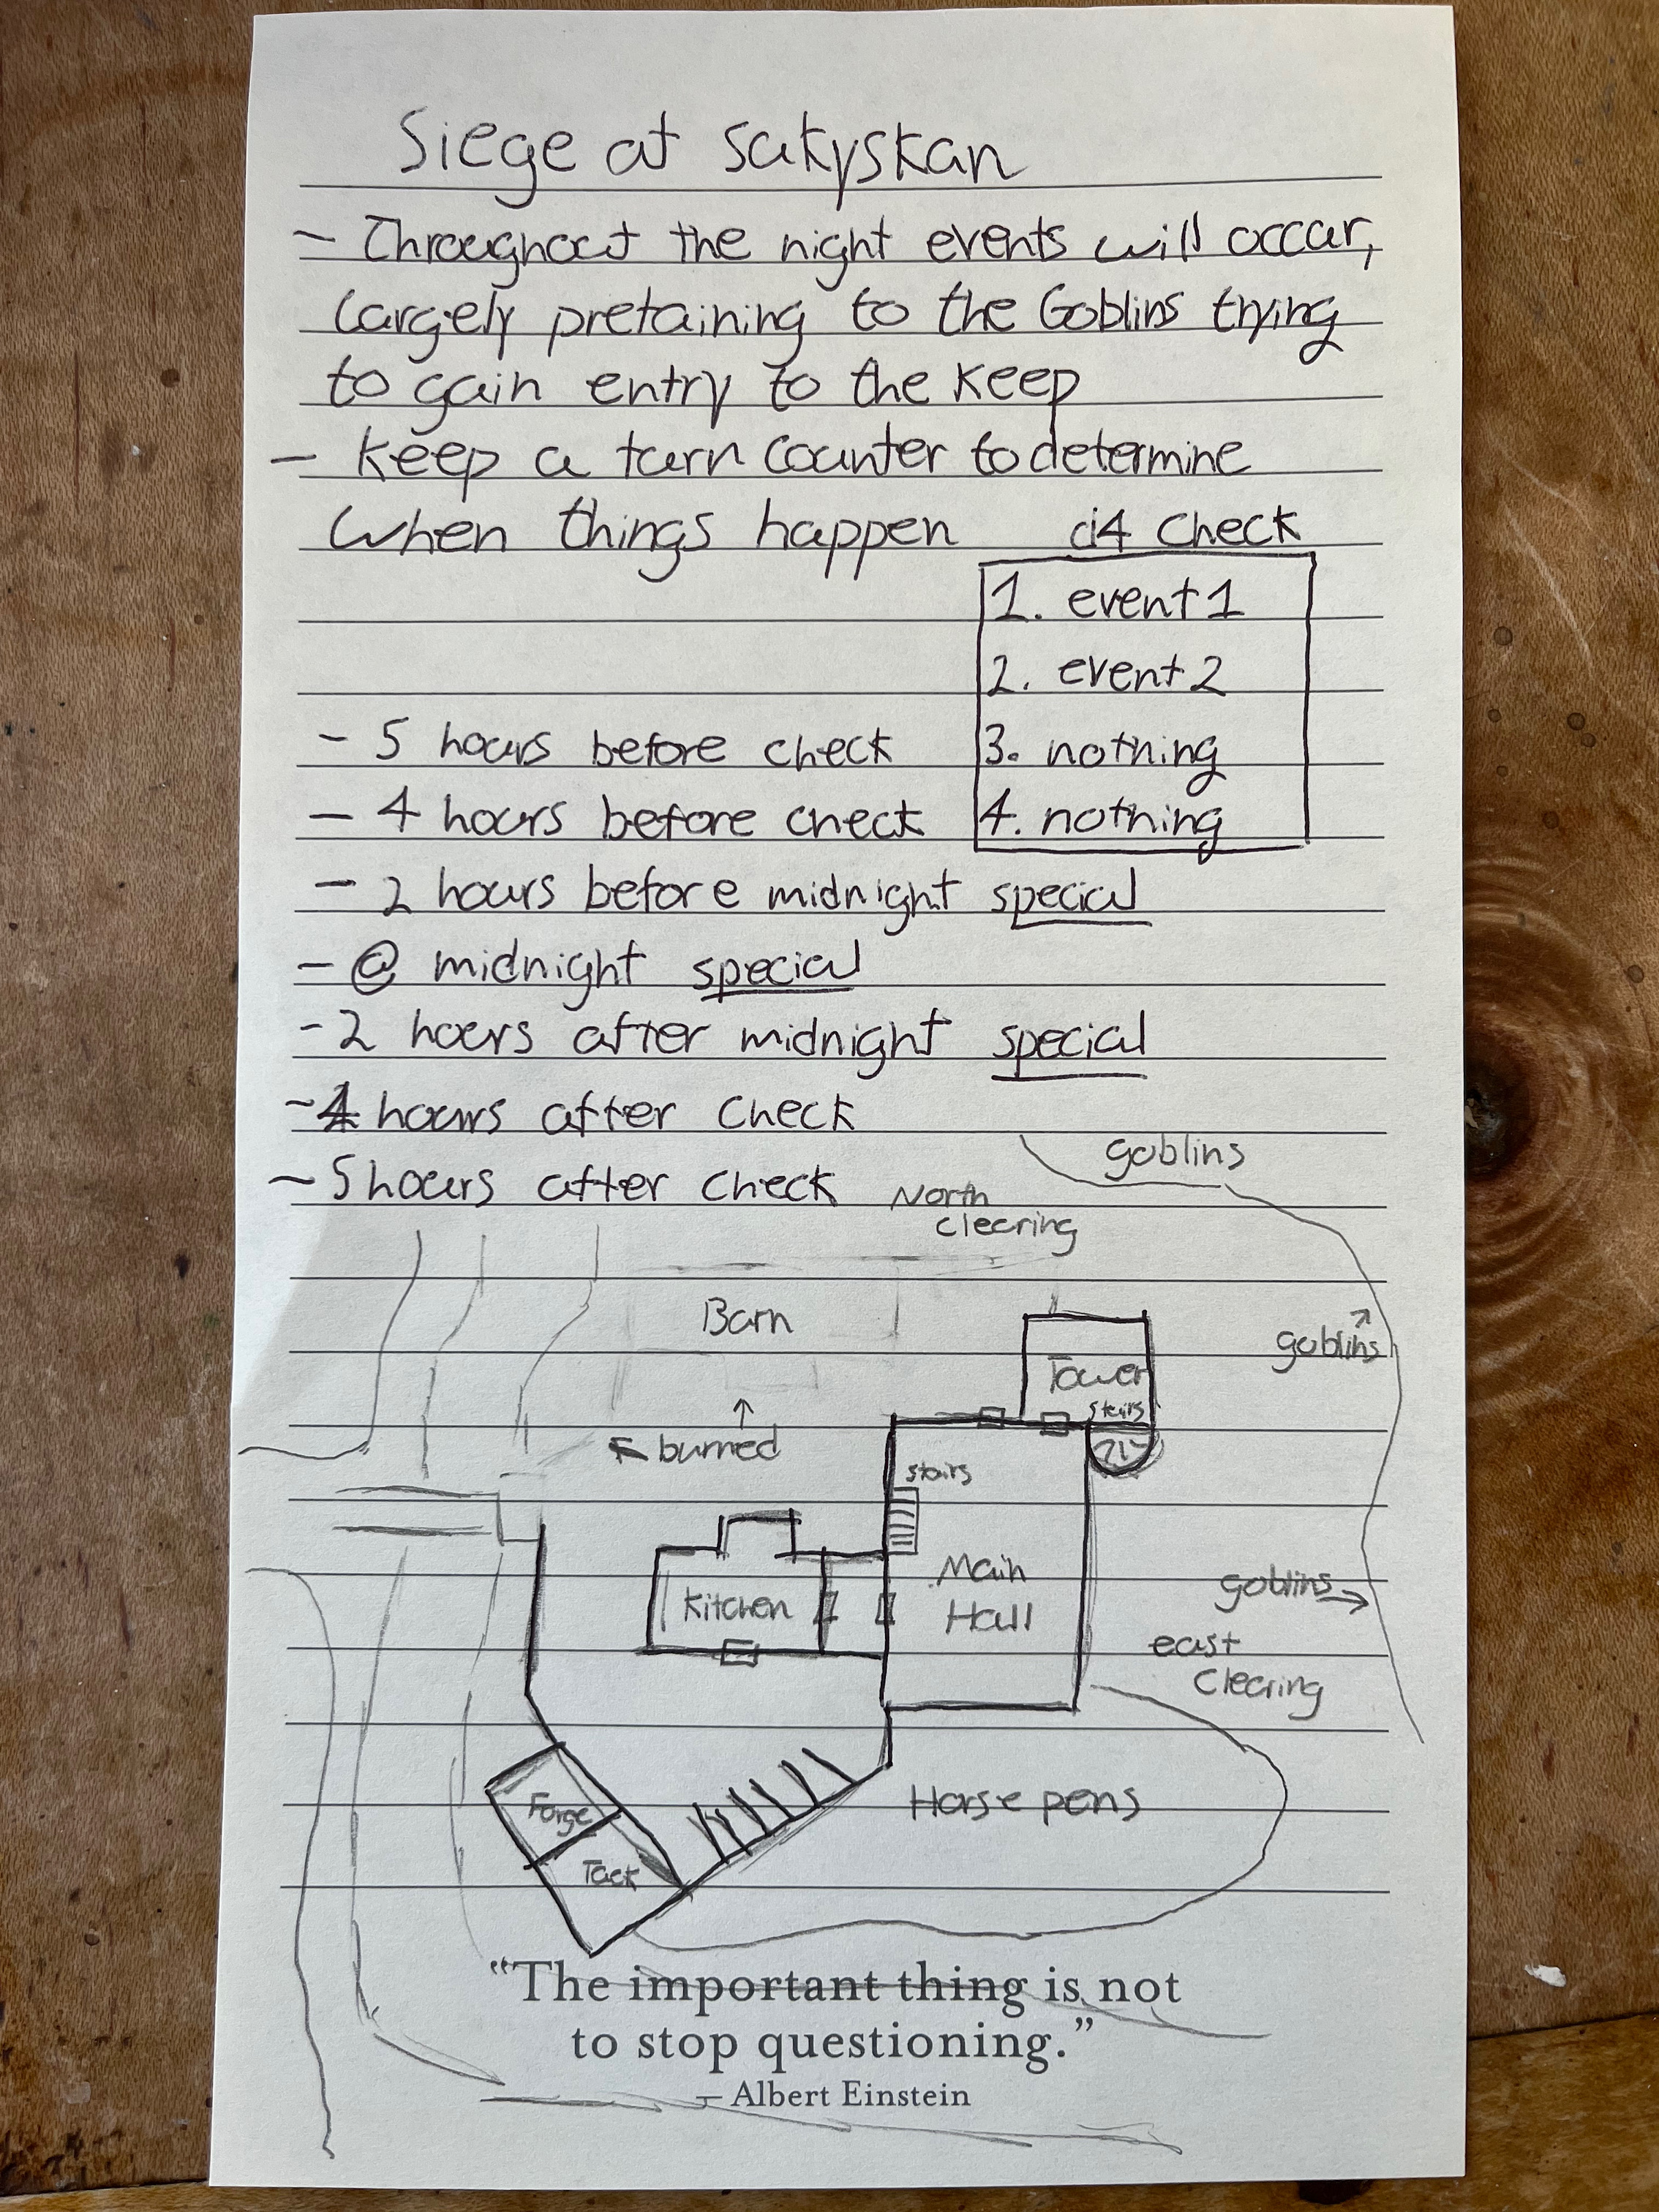 Siege at Sakyskan
- Throughout the night events will occur,
largely pretaining to the Goblins trying
to gain entry to the Keep
- Keep a turn counter to determine
when things happen
d4 Check
1. event 1
2. event 2
3. nothing
4. nothing
- 5 hours before check
- 4 hours before check
- 2 hours before midnight special
- @ midnight special
- 2 hours after midnight special
- 4 hours after check
- 5 hours after check
goblins
North
clearing
Barn
goblins
Tower
stairs
burned
stairs
Main
Hall
Kitchen
goblins
east
Clearing
Forge
Tack
Horse pens
“The important thing is not
to stop questioning.”
– Albert Einstein